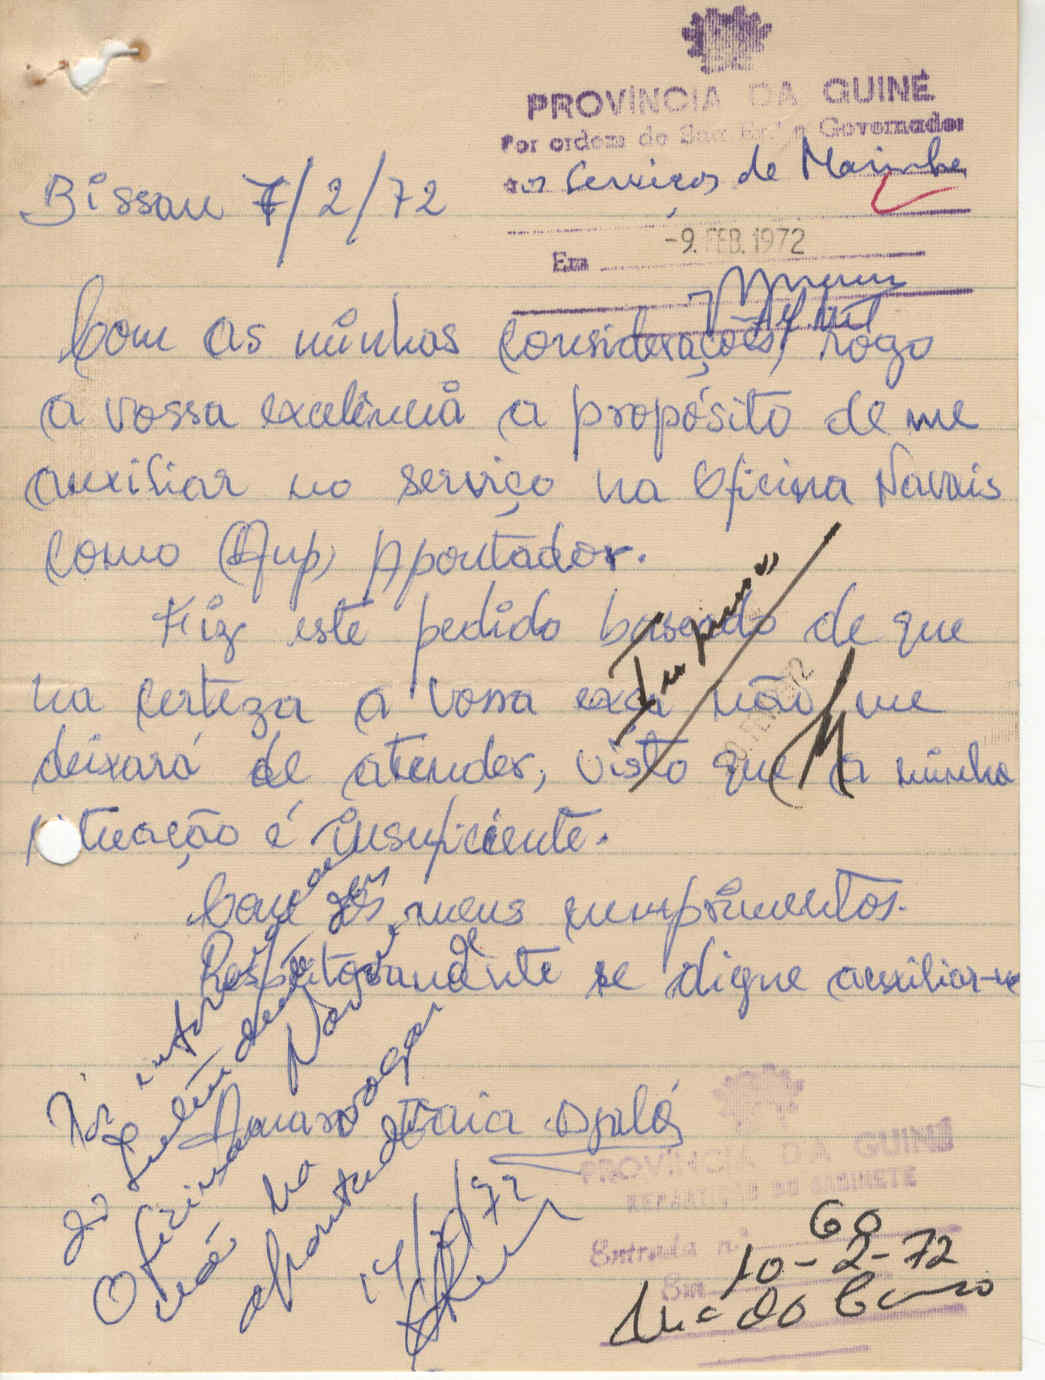 PROVÍNCIA DA GUINÉ
Por ordem de Sua Ex.ª o Governador
aos Serviços de Marinha
Bissau 7/2/72
Em -9. FEB. 1972
Com as minhas considerações, rogo
a vossa excelência a propósito de me
auxiliar no serviço na Oficina Navais
como Apontador.
Fiz este pedido baseado de que
na certeza a vossa exca não me
deixará de atender, visto que a minha
situação é insuficiente.
Com os meus cumprimentos.
Respeitosamente se digne auxiliar-me
Faia Djaló
PROVÍNCIA DA GUINÉ
REPARTIÇÃO DO GABINETE
Entrada n.º 60
Em 10-2-72
Oficinas Navais
não há
vaga de
apontador